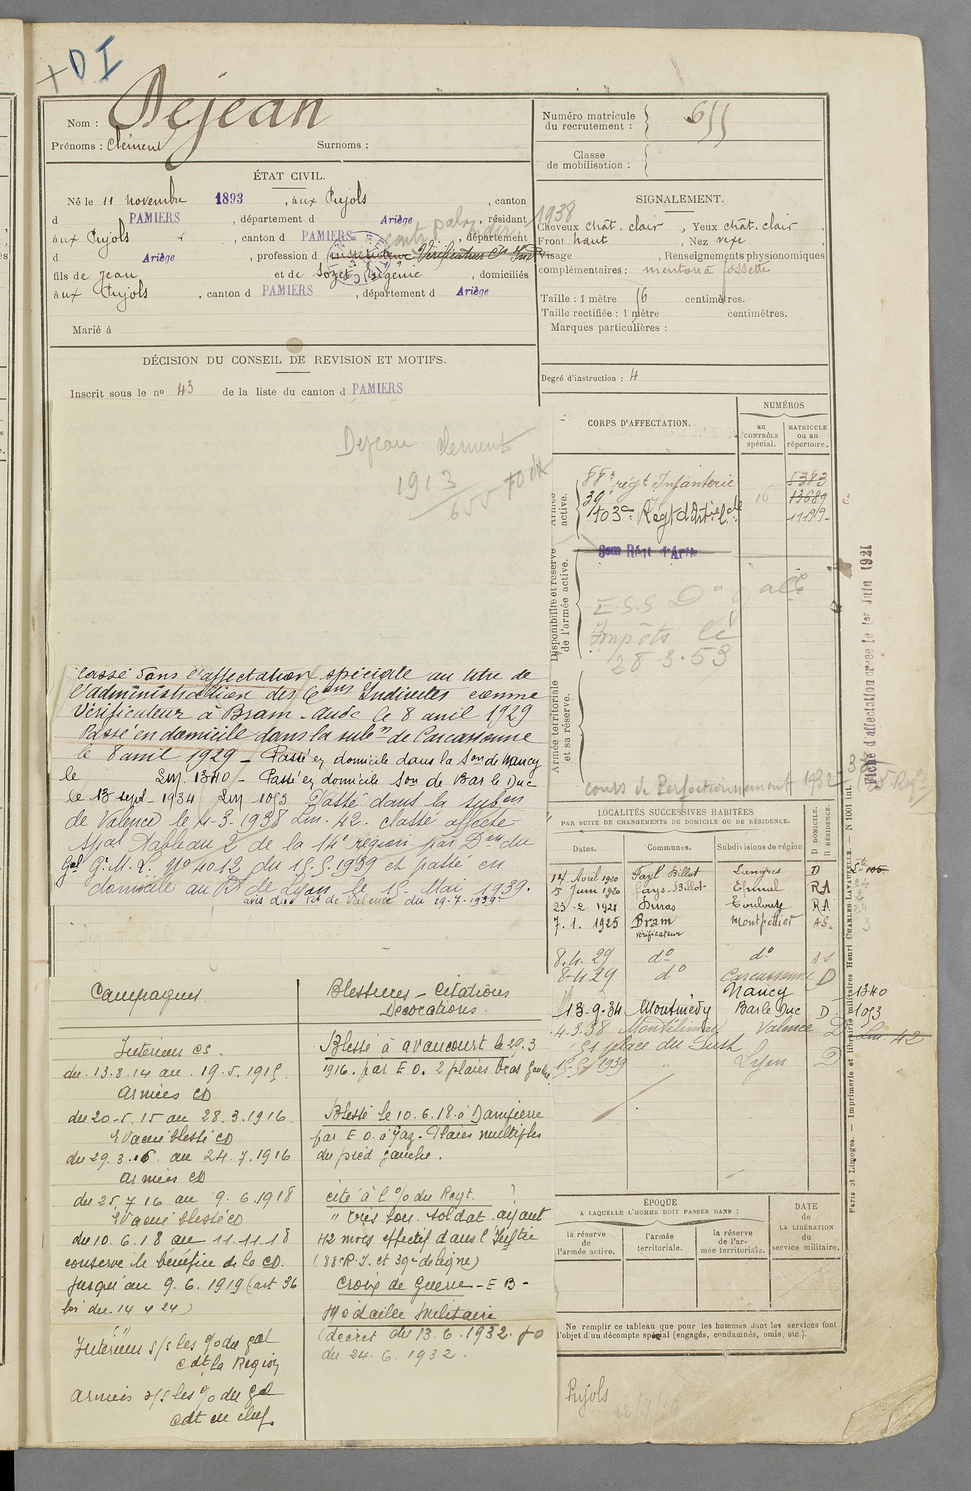 D I
Nom : Dejean
Prénoms : Clément Surnoms :
Numéro matricule
du recrutement : 655
Classe
de mobilisation :
ÉTAT CIVIL.
Né le 11 novembre 1893, aux Pujols, canton
d PAMIERS, département d Ariège, résidant
aux Pujols, canton d PAMIERS, département
d Ariège, profession d
fils de Jean et de Eugénie, domiciliés
aux Pujols, canton d PAMIERS, département d Ariège
Marié à
SIGNALEMENT.
1938
Cheveux chât. clair, Yeux chât. clair
Front haut, Nez vexe,
Visage, Renseignements physionomiques
complémentaires : menton à fossette
Taille : 1 mètre 56 centimètres.
Taille rectifiée : 1 mètre centimètres.
Marques particulières :
Degré d'instruction : 4
DÉCISION DU CONSEIL DE REVISION ET MOTIFS.
Inscrit sous le nº 43 de la liste du canton d PAMIERS
Dejean Clément
1913
655 Foix
classé dans l'affectation spéciale au titre de
l'administration des Cons Indirectes comme
Vérificateur à Bram - Aude le 8 avril 1929
Passé en domicile dans la subon de Carcassonne
le 8 avril 1929 - Passé en domicile dans la Son de Nancy
le Lm. 1340 - Passé en domicile Son de Bar le Duc
le 13 sept. 1934 Lm 1093 Passé dans la subon
de Valence le 4-3-1938 Lm. 42. classé affecté
spal Tableau 2 de la 14e région par Don du
Gal G.M.L. Nº 4012 du 15.5.1939 et passé en
domicile au de Lyon le 15 Mai 1939.
avis du de Valence du 19.7.1939
CORPS D'AFFECTATION.
NUMÉROS
au
CONTRÔLE
spécial.
MATRICULE
ou au
répertoire.
Armée
active.
88e régt Infanterie 5383
39e 16 13689
403e Régt d'Artie 11919
Disponibilité et réserve
de l'armée active.
E.S.S
Impôts
28-3-53
Armée territoriale
et sa réserve.
cours de Perfectionnement 1932
Fiche d'affectation créée le 1er Juin 1921
LOCALITÉS SUCCESSIVES HABITÉES
PAR SUITE DE CHANGEMENTS DE DOMICILE OU DE RÉSIDENCE.
Dates. Communes. Subdivisions de région D DOMICILE. R RÉSIDENCE.
14 Avril 1920 Fayl-Billot Langres D
5 Juin 1920 Fays-Billot Epinal RA
23-2-1921 Duras Toulouse RA
7.1.1925 Bram Montpellier A.S.
Vérificateur
8.4.29 do do A.S.
8-4-29 do Carcassonne D
Nancy 1340
13-9-34 Montmédy Bar le Duc D 1093
4-3-38 Montélimar Valence D Lm. 42
51 place du
15-5-1939 " Lyon D
Campagnes
Intérieur CS.
du 13.8.14 au 19.5.1915
Armées CD
du 20-5-15 au 28.3.1916
Evacué blessé CD
du 29.3.16 au 24.7.1916
Armées CD
du 25.7.16 au 9.6.1918
Evacué blessé CD
du 10.6.18 au 11.11.18
conserve le bénéfice de la CD.
jusqu'au 9.6.1919 (art 36
loi du 14 4 24)
Intérieur s/s les % du gal
cdt la Région
Armées s/s les % du gal
cdt en chef
Blessures - Citations
Décorations.
Blessé à Avaucourt le 29.3
1916. par E O. 2 plaies bras gauche
Blessé le 10.6.18 à Dampierre
par E O. à Gaz. Plaies multiples
du pied gauche.
cité à l'% du Regt.
" très bon soldat ayant
42 mois effectif dans l'Inftie
(88e R.I. et 39e de ligne)
Croix de Guerre - E B -
Médaille Militaire
(décret du 13.6.1932. JO
du 24.6.1932.
ÉPOQUE
A LAQUELLE L'HOMME DOIT PASSER DANS :
la réserve
de
l'armée active.
l'armée
territoriale.
la réserve
de l'ar-
mée territoriale.
DATE
de
LA LIBÉRATION
du
service militaire.
Ne remplir ce tableau que pour les hommes dont les services font
l'objet d'un décompte spécial (engagés, condamnés, omis, etc.).
Pujols
Paris et Limoges. — Imprimerie et librairie militaires Henri CHARLES-LAVAUZELLE. — N 1001 int.